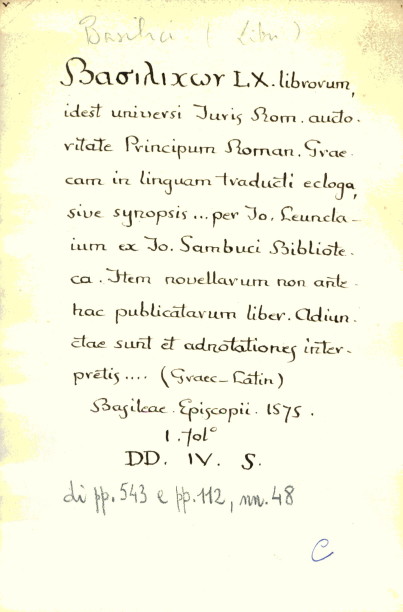 Basilici (Libri)
Βασιλιχωr LX. librorum,
idest universi Iuris Rom. aucto.
ritate Principum Roman. Grae.
cam in linguam traducti ecloga,
sive synopsis... per Io. Leuncla-
ium ex Io. Sambuci Bibliote.
ca. Item novellarum non ante
hac publicatarum liber. Adiun.
ctae sunt et adnotationes inter-
pretis.... (Graec-Latin)
Basileae. Episcopii. 1575.
1. fol°
DD. IV. S.
di pp. 543 e pp. 112, nn. 48
C